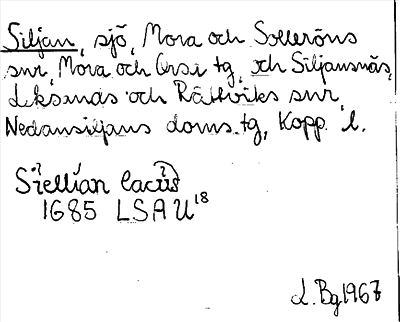 Siljan, sjö, Mora och Solleröns
snr, Mora och Orsa tg, och Siljansnäs,
Leksands och Rättviks snr,
Nedansiljans doms. tg, Kopp. l.
Siellian lacus
1685 LSA U18
L.Bg 1967